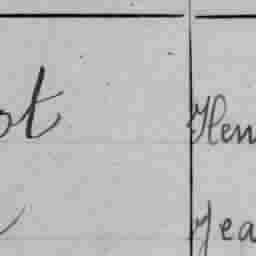 ot Hen
Jea